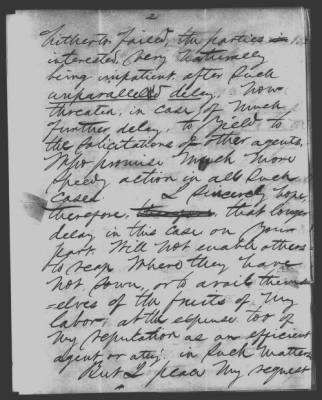 2
hitherto failed, the parties in-
interested, very naturally
being impatient after such
unparalleled delay. Now
threaten, in case of much
further delay, to yield to
the solicitations of other agents,
who promise much more
speedy action in all such
cases. I sincerely hope,
therefore, that longer
delay in this case on your
part, will not enable others
to reap where they have
not sown, or to avail them-
-selves of the fruits of my
labor, at the expense too of
my reputation as an efficient
agent or atty. in such matters.
But I place my request